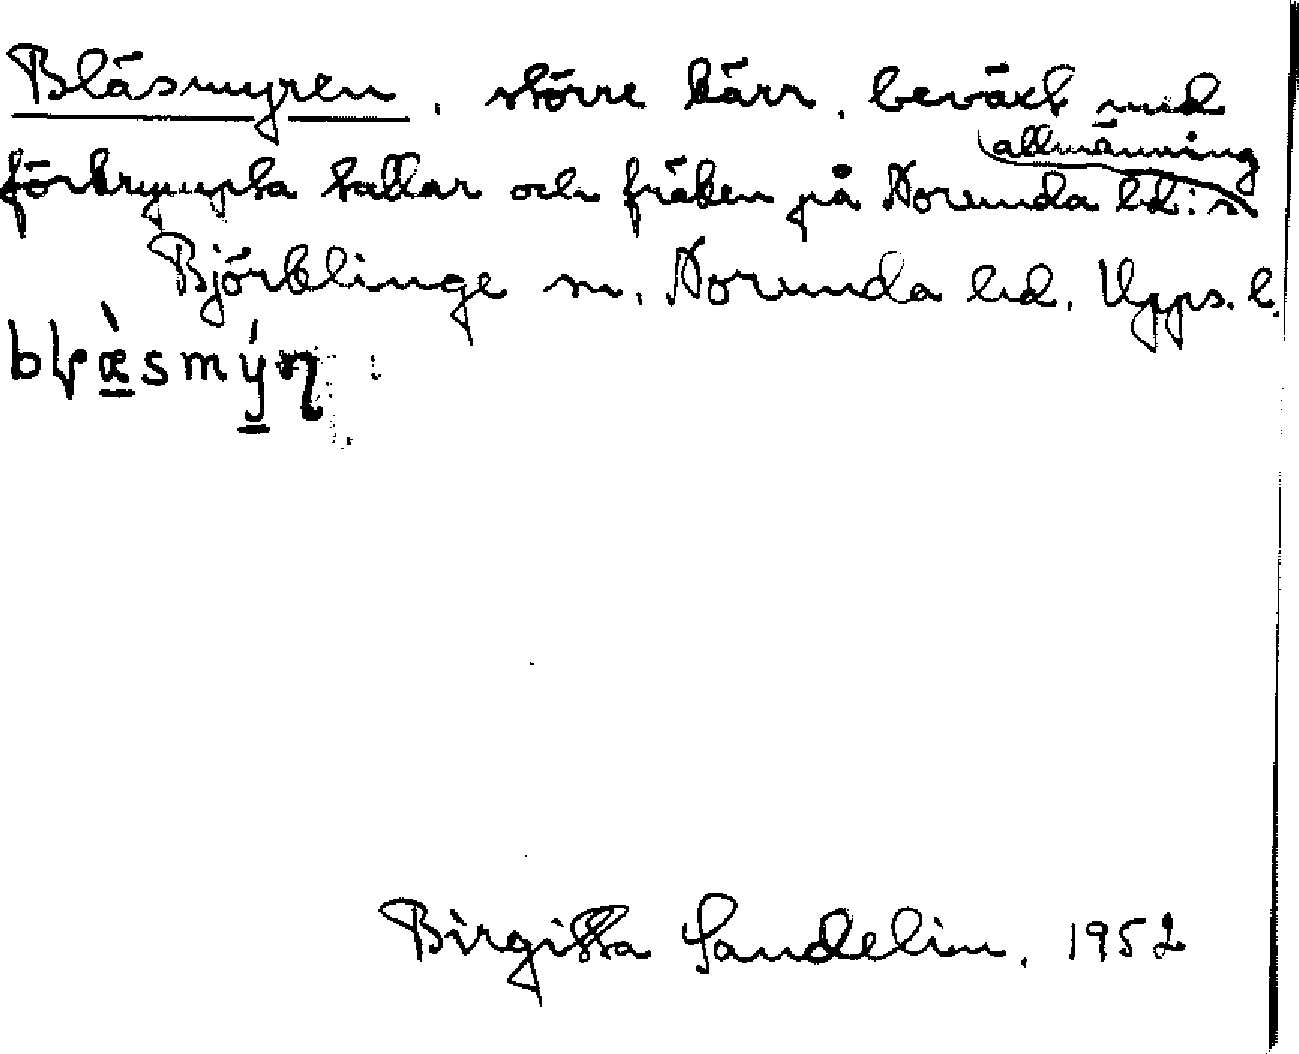 Bläsmyren, större kärr, beväxt med
förkrympta tallar och fräken på Norunda hd:s allmänning
Björklinge sn, Norunda hd. Upps. l.
Birgitta Sandelin. 1952